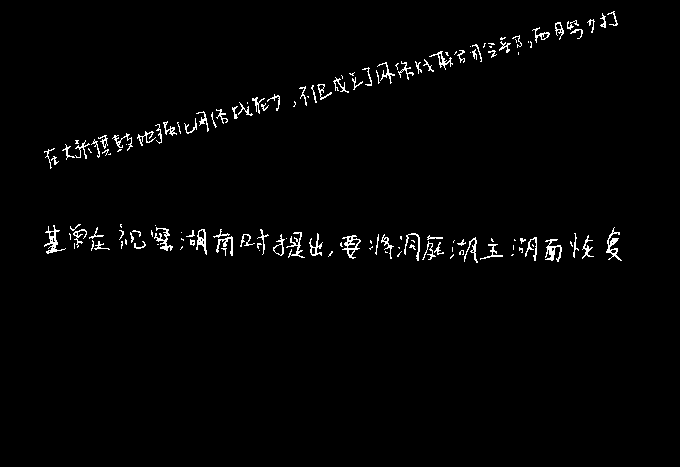 在大张旗鼓地强化网络战能力,不但成立了网络战联合司令部,而且努力打
基曾在视察湖南时提出,要将洞庭湖主湖面恢复